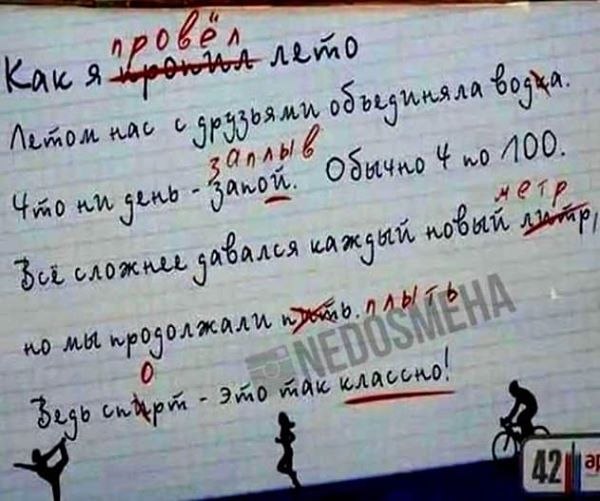 провёл
Как я пропил лето
Летом нас с друзьями объединяла водка.
заплыв
Что ни день - запой. Обычно 4 по 100.
метр
Всё сложнее давался каждый новый литр,
но мы продолжали пить. плыть
о
Ведь спирт - это так классно!
NEDOSMEHA
42
ар